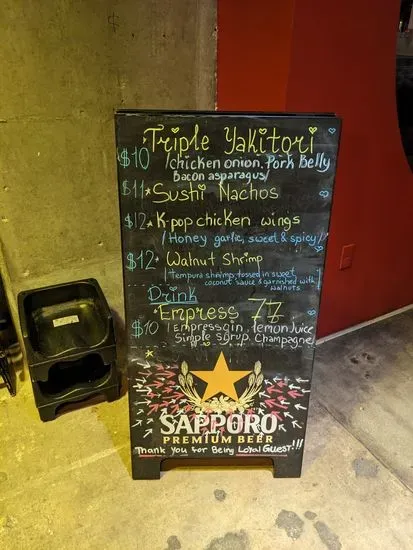 Triple Yakitori
$10 /chicken onion. Pork Belly
Bacon asparagus/
$11 Sushi Nachos
$12 K-pop chicken wings
/Honey garlic, sweet & spicy/
$12 Walnut Shrimp
/Tempura shrimp tossed in sweet
coconut sauce & garnished with
walnuts
Drink
Empress 77
$10 /Empress gin, lemon Juice
Simple syrup. Champagne/
SAPPORO
PREMIUM BEER
Thank you for Being Loyal Guest!!!